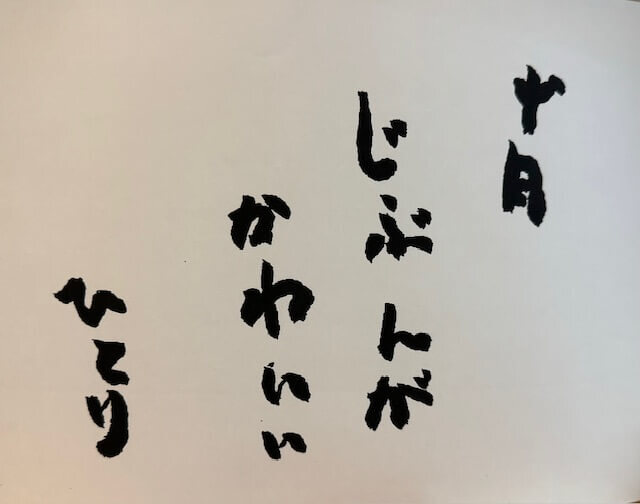 十月
じぶんが
かわいい
ひとり